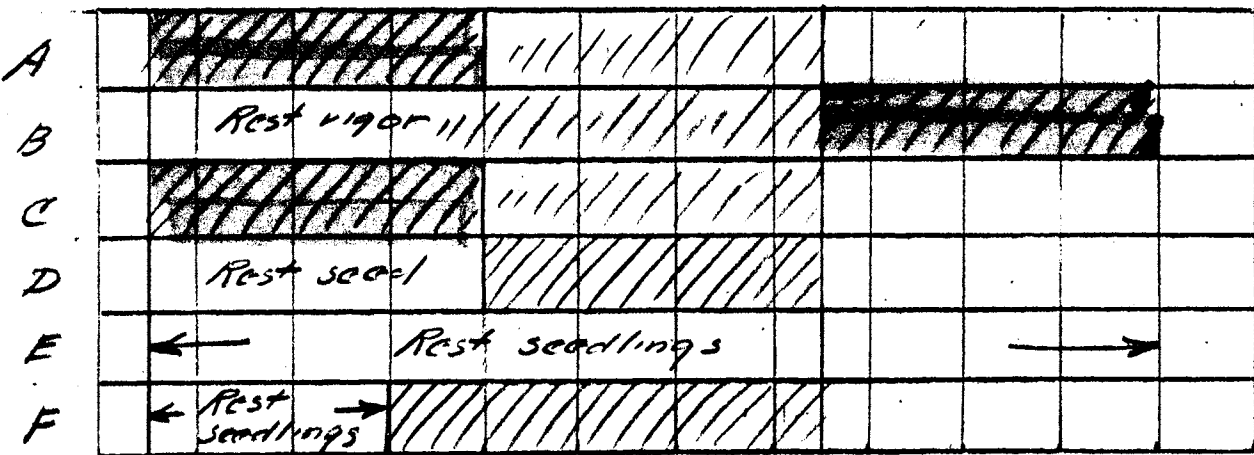 A
B Rest vigor
C
D Rest seed
E Rest seedlings
F Rest
seedlings